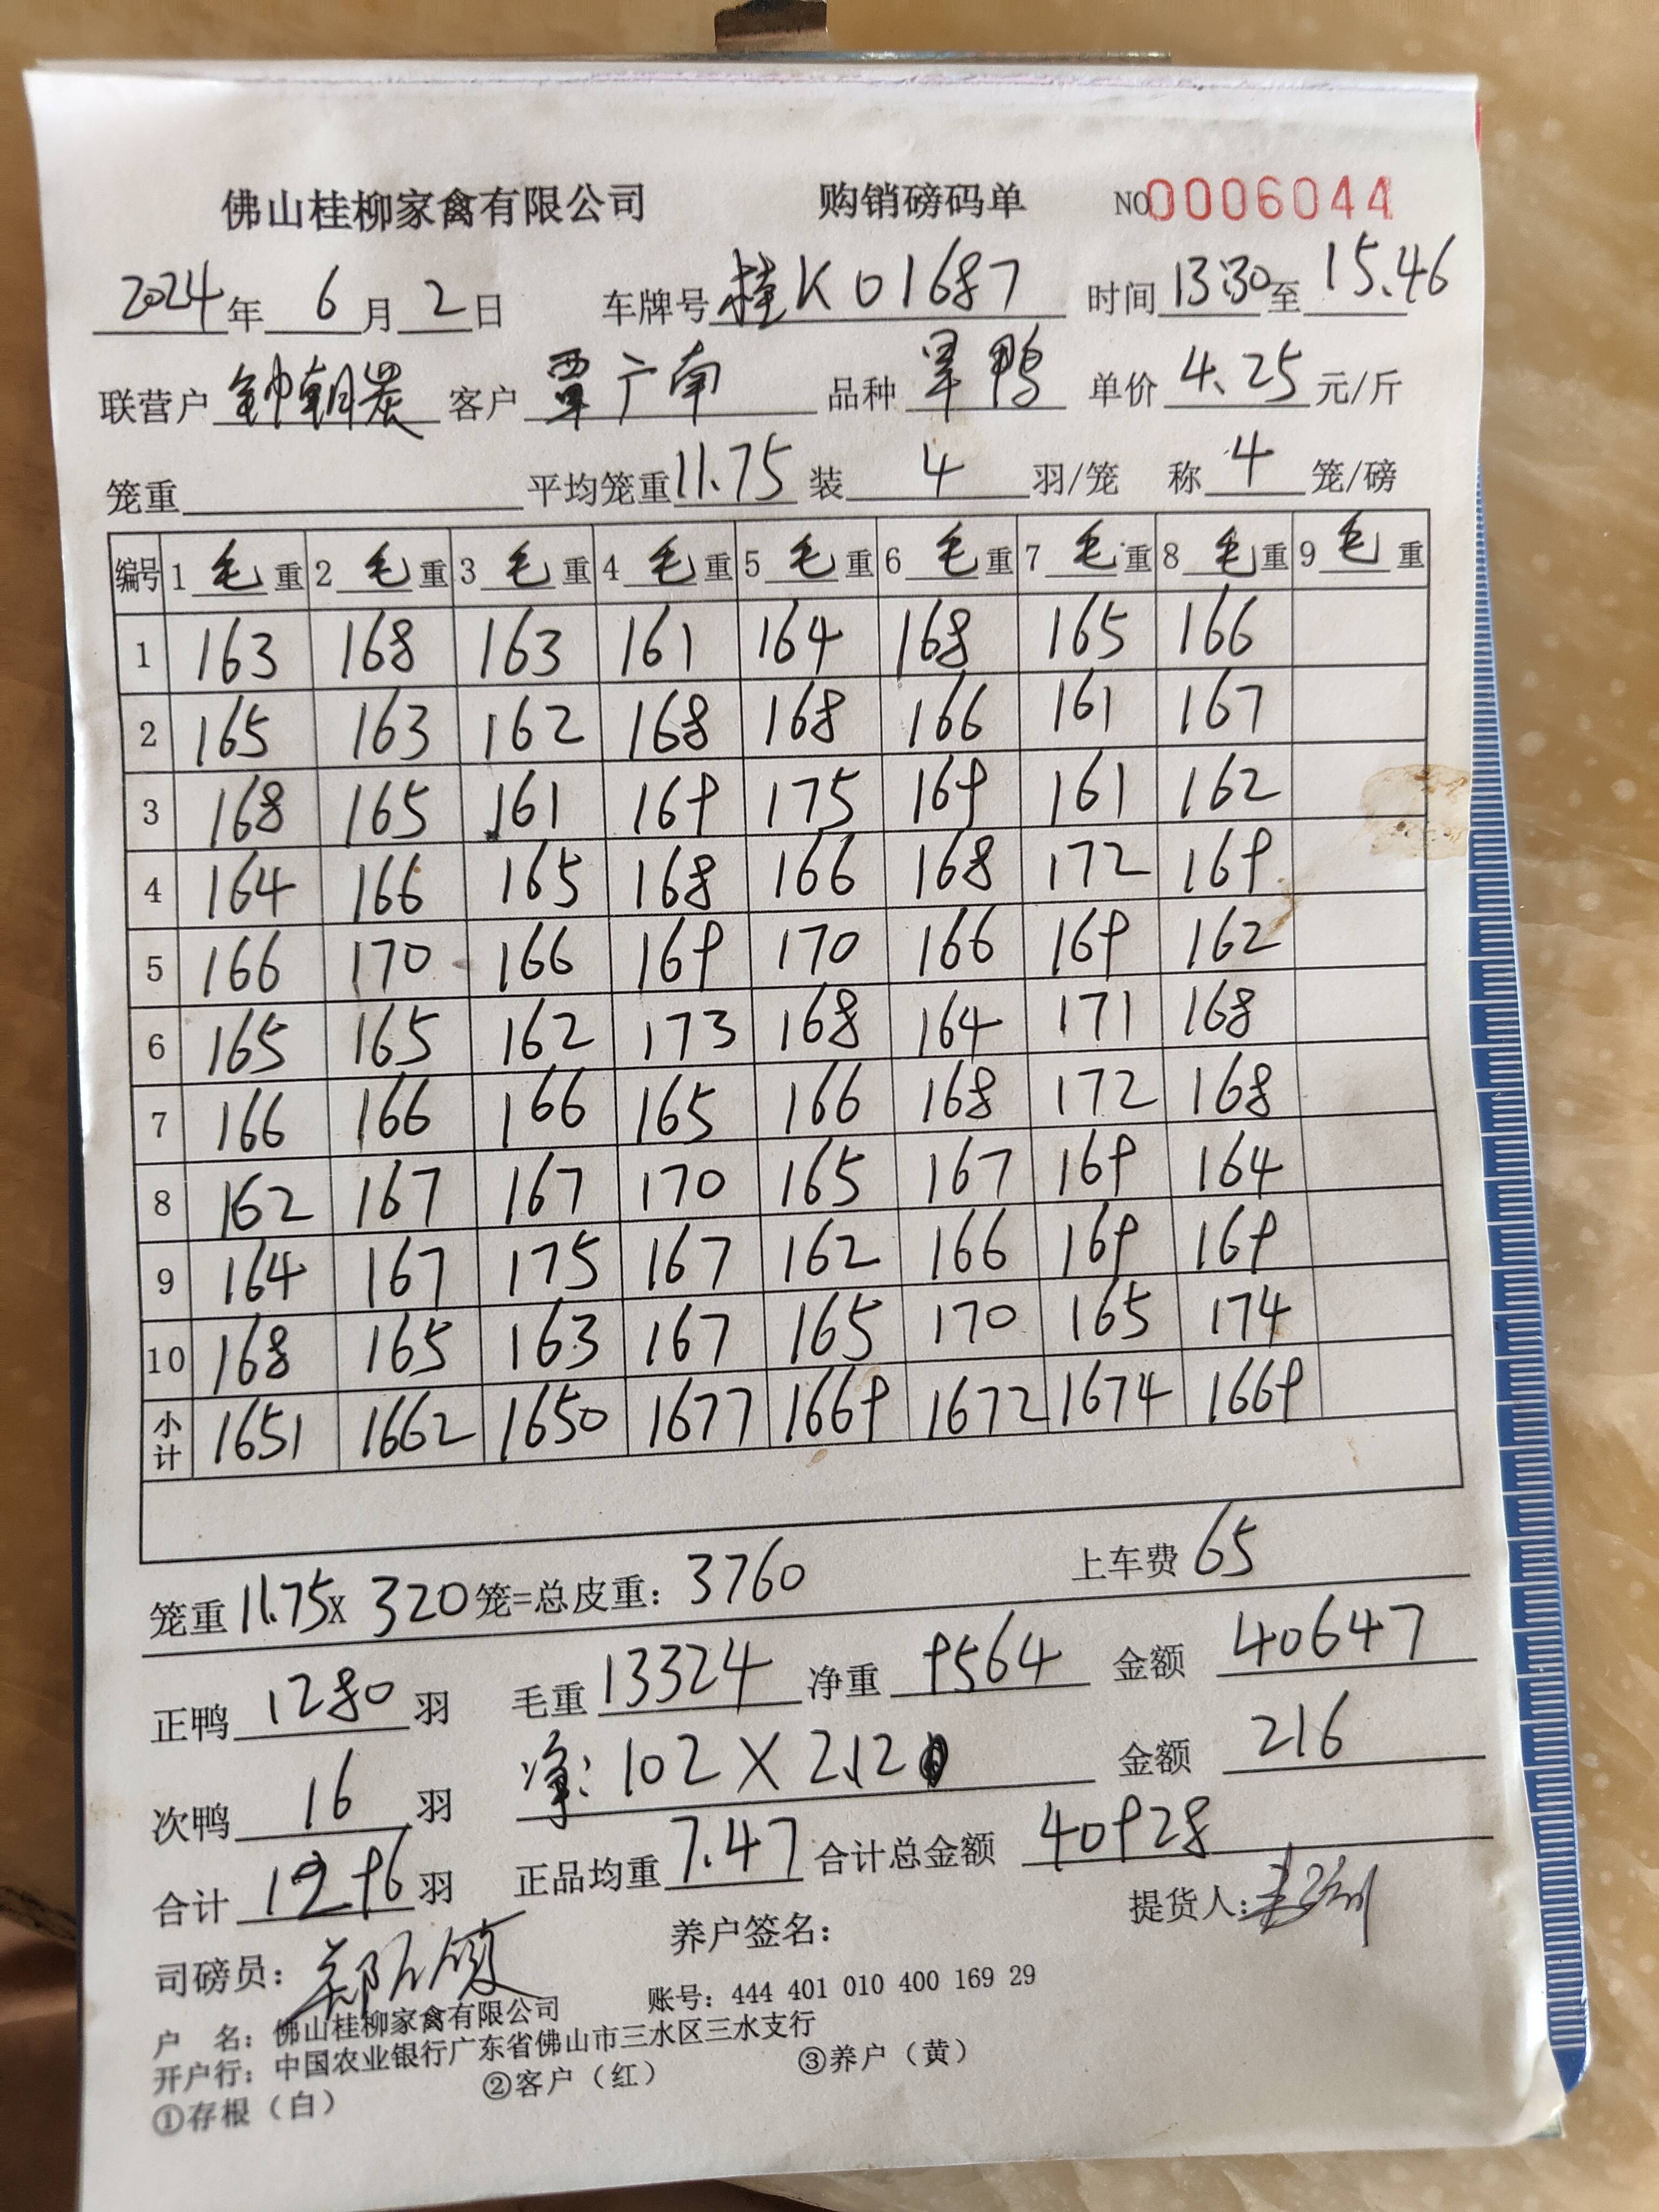 佛山桂柳家禽有限公司 购销磅码单 NO0006044
2024年 6 月 2 日 车牌号 桂K01687 时间 13:30 至 15.46
联营户 钟朝 客户 覃广南 品种 旱鸭 单价 4.25 元/斤
笼重 平均笼重 11.75 装 4 羽/笼 称 4 笼/磅
编号 1 毛 重 2 毛 重 3 毛 重 4 毛 重 5 毛 重 6 毛 重 7 毛 重 8 毛 重 9 毛 重
1 163 168 163 161 164 168 165 166
2 165 163 162 168 168 166 161 167
3 168 165 161 169 175 169 161 162
4 164 166 165 168 166 168 172 169
5 166 170 166 169 170 166 169 162
6 165 165 162 173 168 164 171 168
7 166 166 166 165 166 168 172 168
8 162 167 167 170 165 167 169 164
9 164 167 175 167 162 166 169 169
10 168 165 163 167 165 170 165 174
小计 1651 1662 1650 1677 1669 1672 1674 1669
笼重 11.75 x 320 笼=总皮重: 3760 上车费 65
正鸭 1280 羽 毛重 13324 净重 9564 金额 40647
次鸭 16 羽 净: 102 X 2.12 金额 216
合计 1296 羽 正品均重 7.47 合计总金额 40928
司磅员: 养户签名: 提货人:
户 名: 佛山桂柳家禽有限公司 账号: 444 401 010 400 169 29
开户行: 中国农业银行广东省佛山市三水区三水支行
①存根（白） ②客户（红） ③养户（黄）